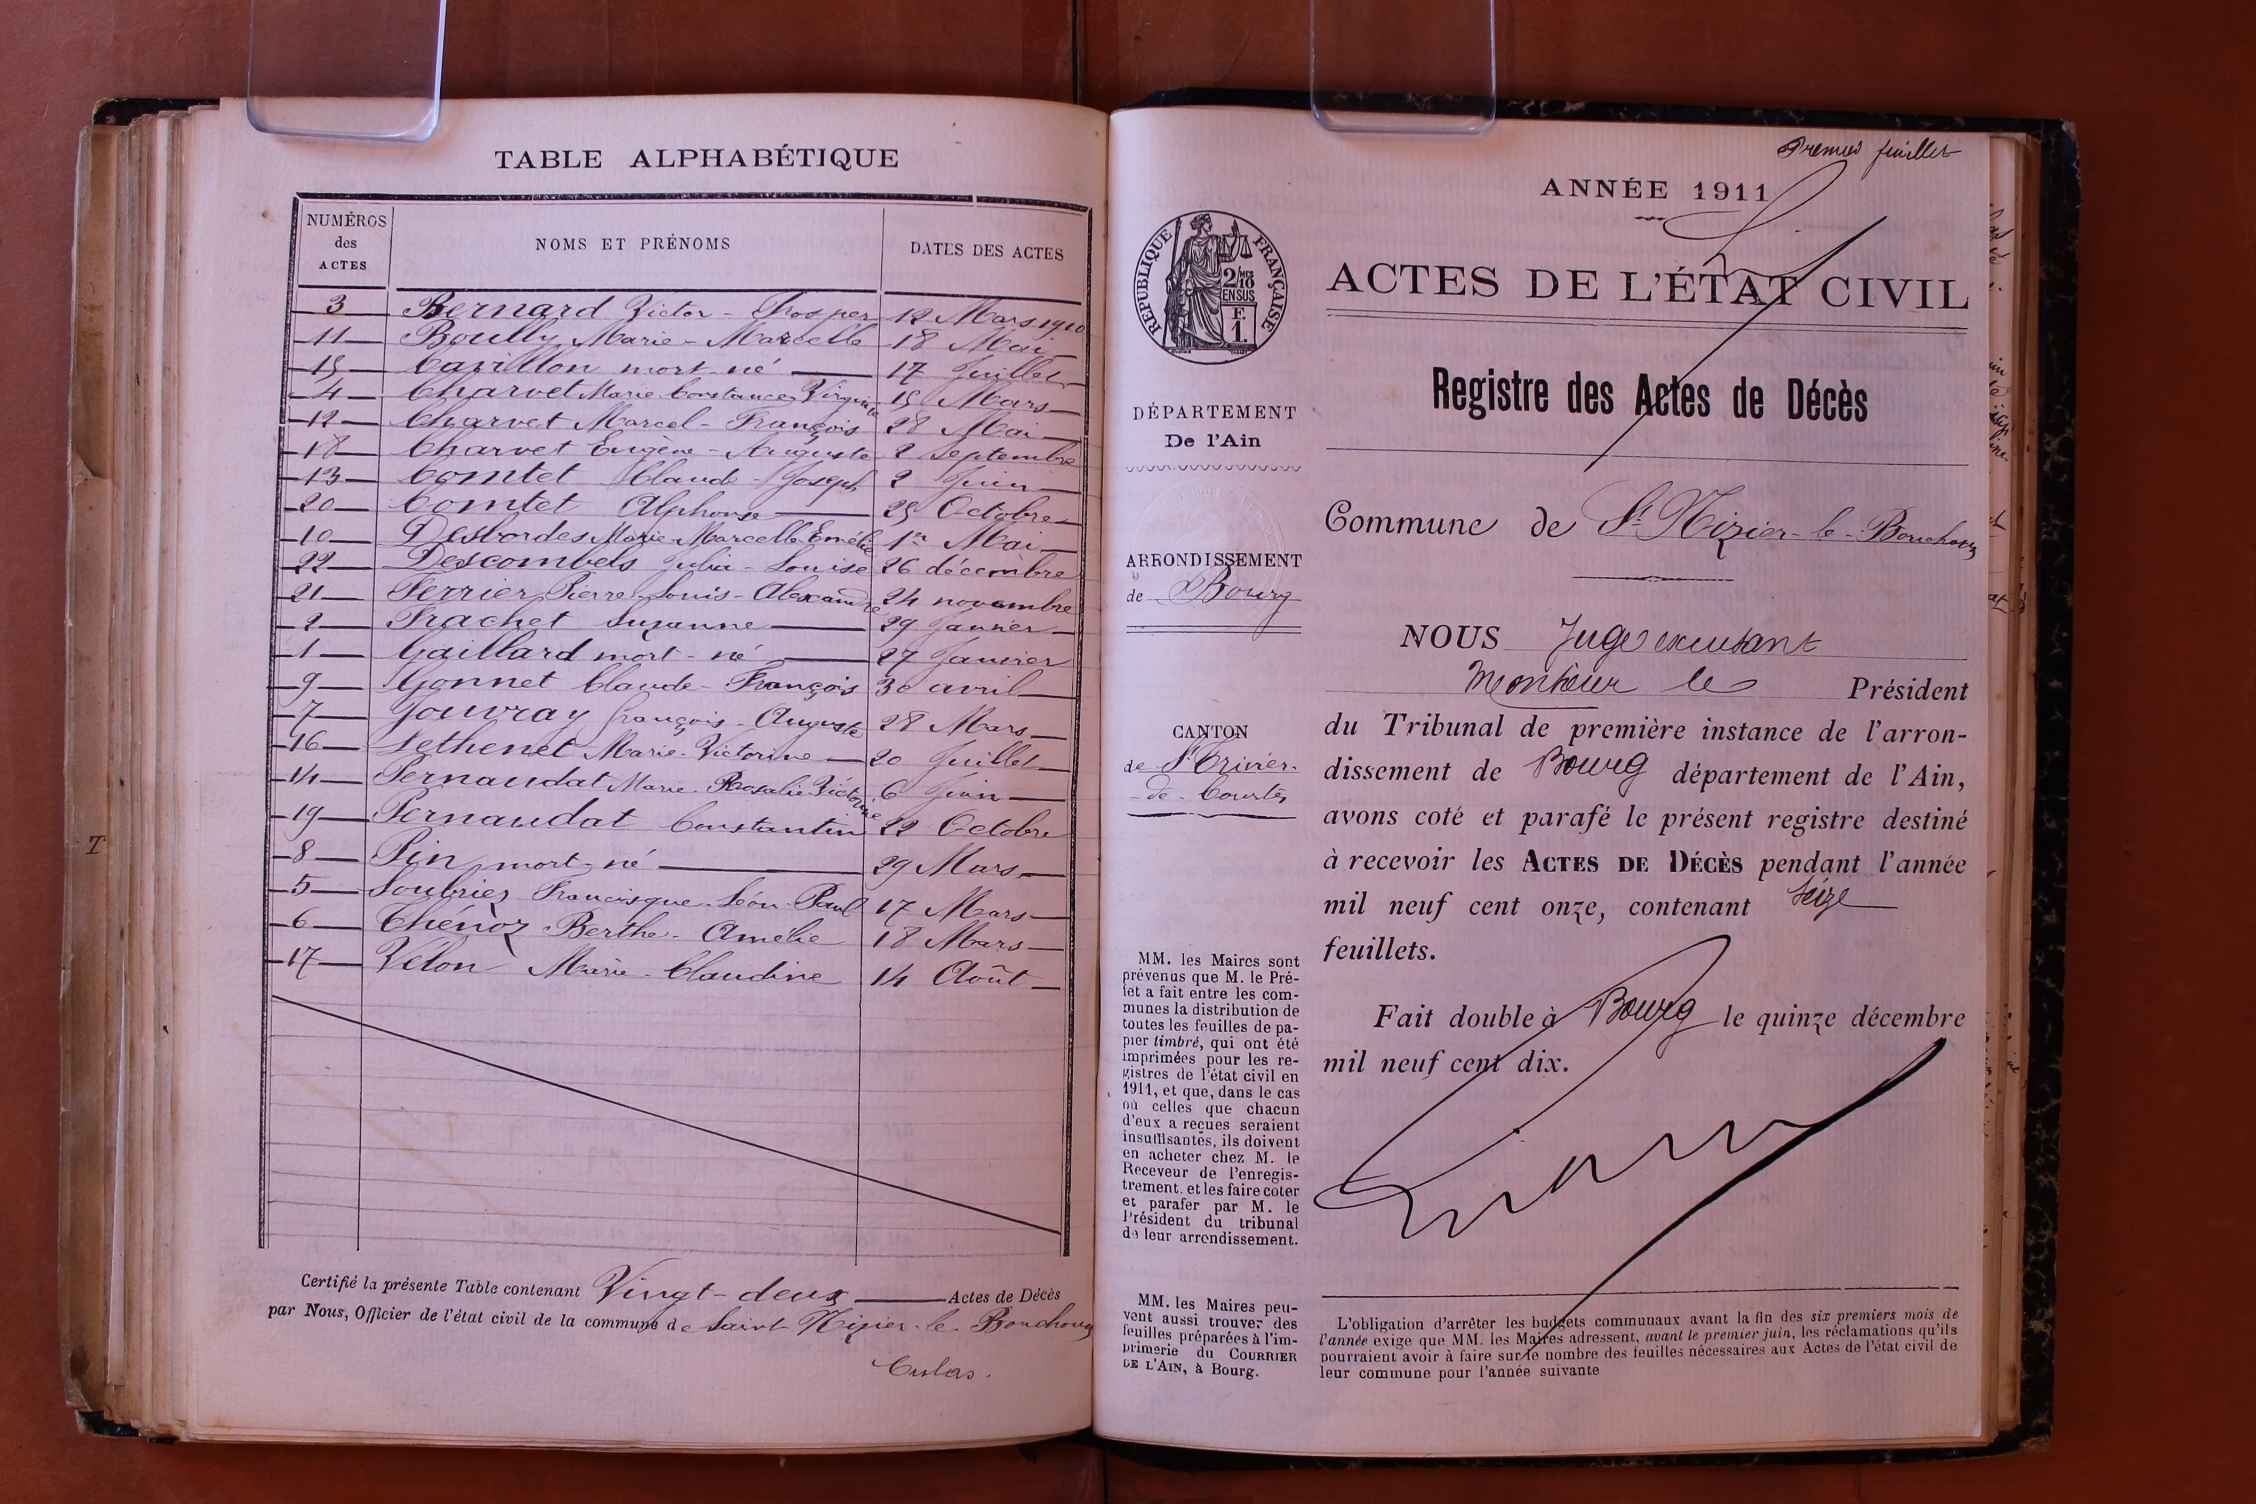 TABLE ALPHABÉTIQUE
NUMÉROS des ACTES
NOMS ET PRÉNOMS
DATES DES ACTES
3 Bernard Victor - Prosper 12 Mars 1910
11 Boully Marie - Marcelle 18 Mai
15 Cavillon mort-né 17 Juillet
4 Charvet Marie Constance Virginie 15 Mars
12 Charvet Marcel - François 28 Mai
18 Charvet Eugène - Auguste 2 Septembre
13 Comtet Claude - Joseph 2 Juin
20 Comtet Alphonse 25 Octobre
10 Desbordes Marie-Marcelle-Emélie 1er Mai
22 Descombels Julia - Louise 26 décembre
21 Ferrier Pierre-Louis-Alexandre 24 novembre
2 Frachet Suzanne 29 Janvier
1 Gaillard mort-né 27 Janvier
9 Gonnet Claude - François 30 avril
7 Jouvray François - Auguste 28 Mars
16 Lethenet Marie-Victorine 20 Juillet
14 Pernaudat Marie-Rosalie-Victorine 6 Juin
19 Pernaudat Constantin 22 Octobre
8 Pin mort-né 29 Mars
5 Soubriez Francisque-Léon-Paul 17 Mars
6 Thénoz Berthe - Amélie 18 Mars
17 Vélon Marie - Claudine 14 Août
Certifié la présente Table contenant Vingt-deux Actes de Décès
par Nous, Officier de l'état civil de la commune de Saint-Nizier-le-Bouchoux
T
Premier feuillet
ANNÉE 1911
RÉPUBLIQUE FRANÇAISE
2/10 EN SUS
F. 1.
ACTES DE L'ÉTAT CIVIL
Registre des Actes de Décès
DÉPARTEMENT
De l'Ain
Commune de St Nizier-le-Bouchoux
ARRONDISSEMENT
de Bourg
CANTON
de St Trivier-
-de-Courtes
NOUS Juge excusant
Monsieur le Président
du Tribunal de première instance de l'arron-
dissement de Bourg département de l'Ain,
avons coté et parafé le présent registre destiné
à recevoir les ACTES DE DÉCÈS pendant l'année
mil neuf cent onze, contenant seize
feuillets.
Fait double à Bourg le quinze décembre
mil neuf cent dix.
MM. les Maires sont
prévenus que M. le Pré-
fet a fait entre les com-
munes la distribution de
toutes les feuilles de pa-
pier timbré, qui ont été
imprimées pour les re-
gistres de l'état civil en
1911, et que, dans le cas
où celles que chacun
d'eux a reçues seraient
insuffisantes, ils doivent
en acheter chez M. le
Receveur de l'enregis-
trement, et les faire coter
et parafer par M. le
Président du tribunal
de leur arrondissement.
MM. les Maires peu-
vent aussi trouver des
feuilles préparées à l'im-
primerie du COURRIER
DE L'AIN, à Bourg.
L'obligation d'arrêter les budgets communaux avant la fin des six premiers mois de
l'année exige que MM. les Maires adressent, avant le premier juin, les réclamations qu'ils
pourraient avoir à faire sur le nombre des feuilles nécessaires aux Actes de l'état civil de
leur commune pour l'année suivante